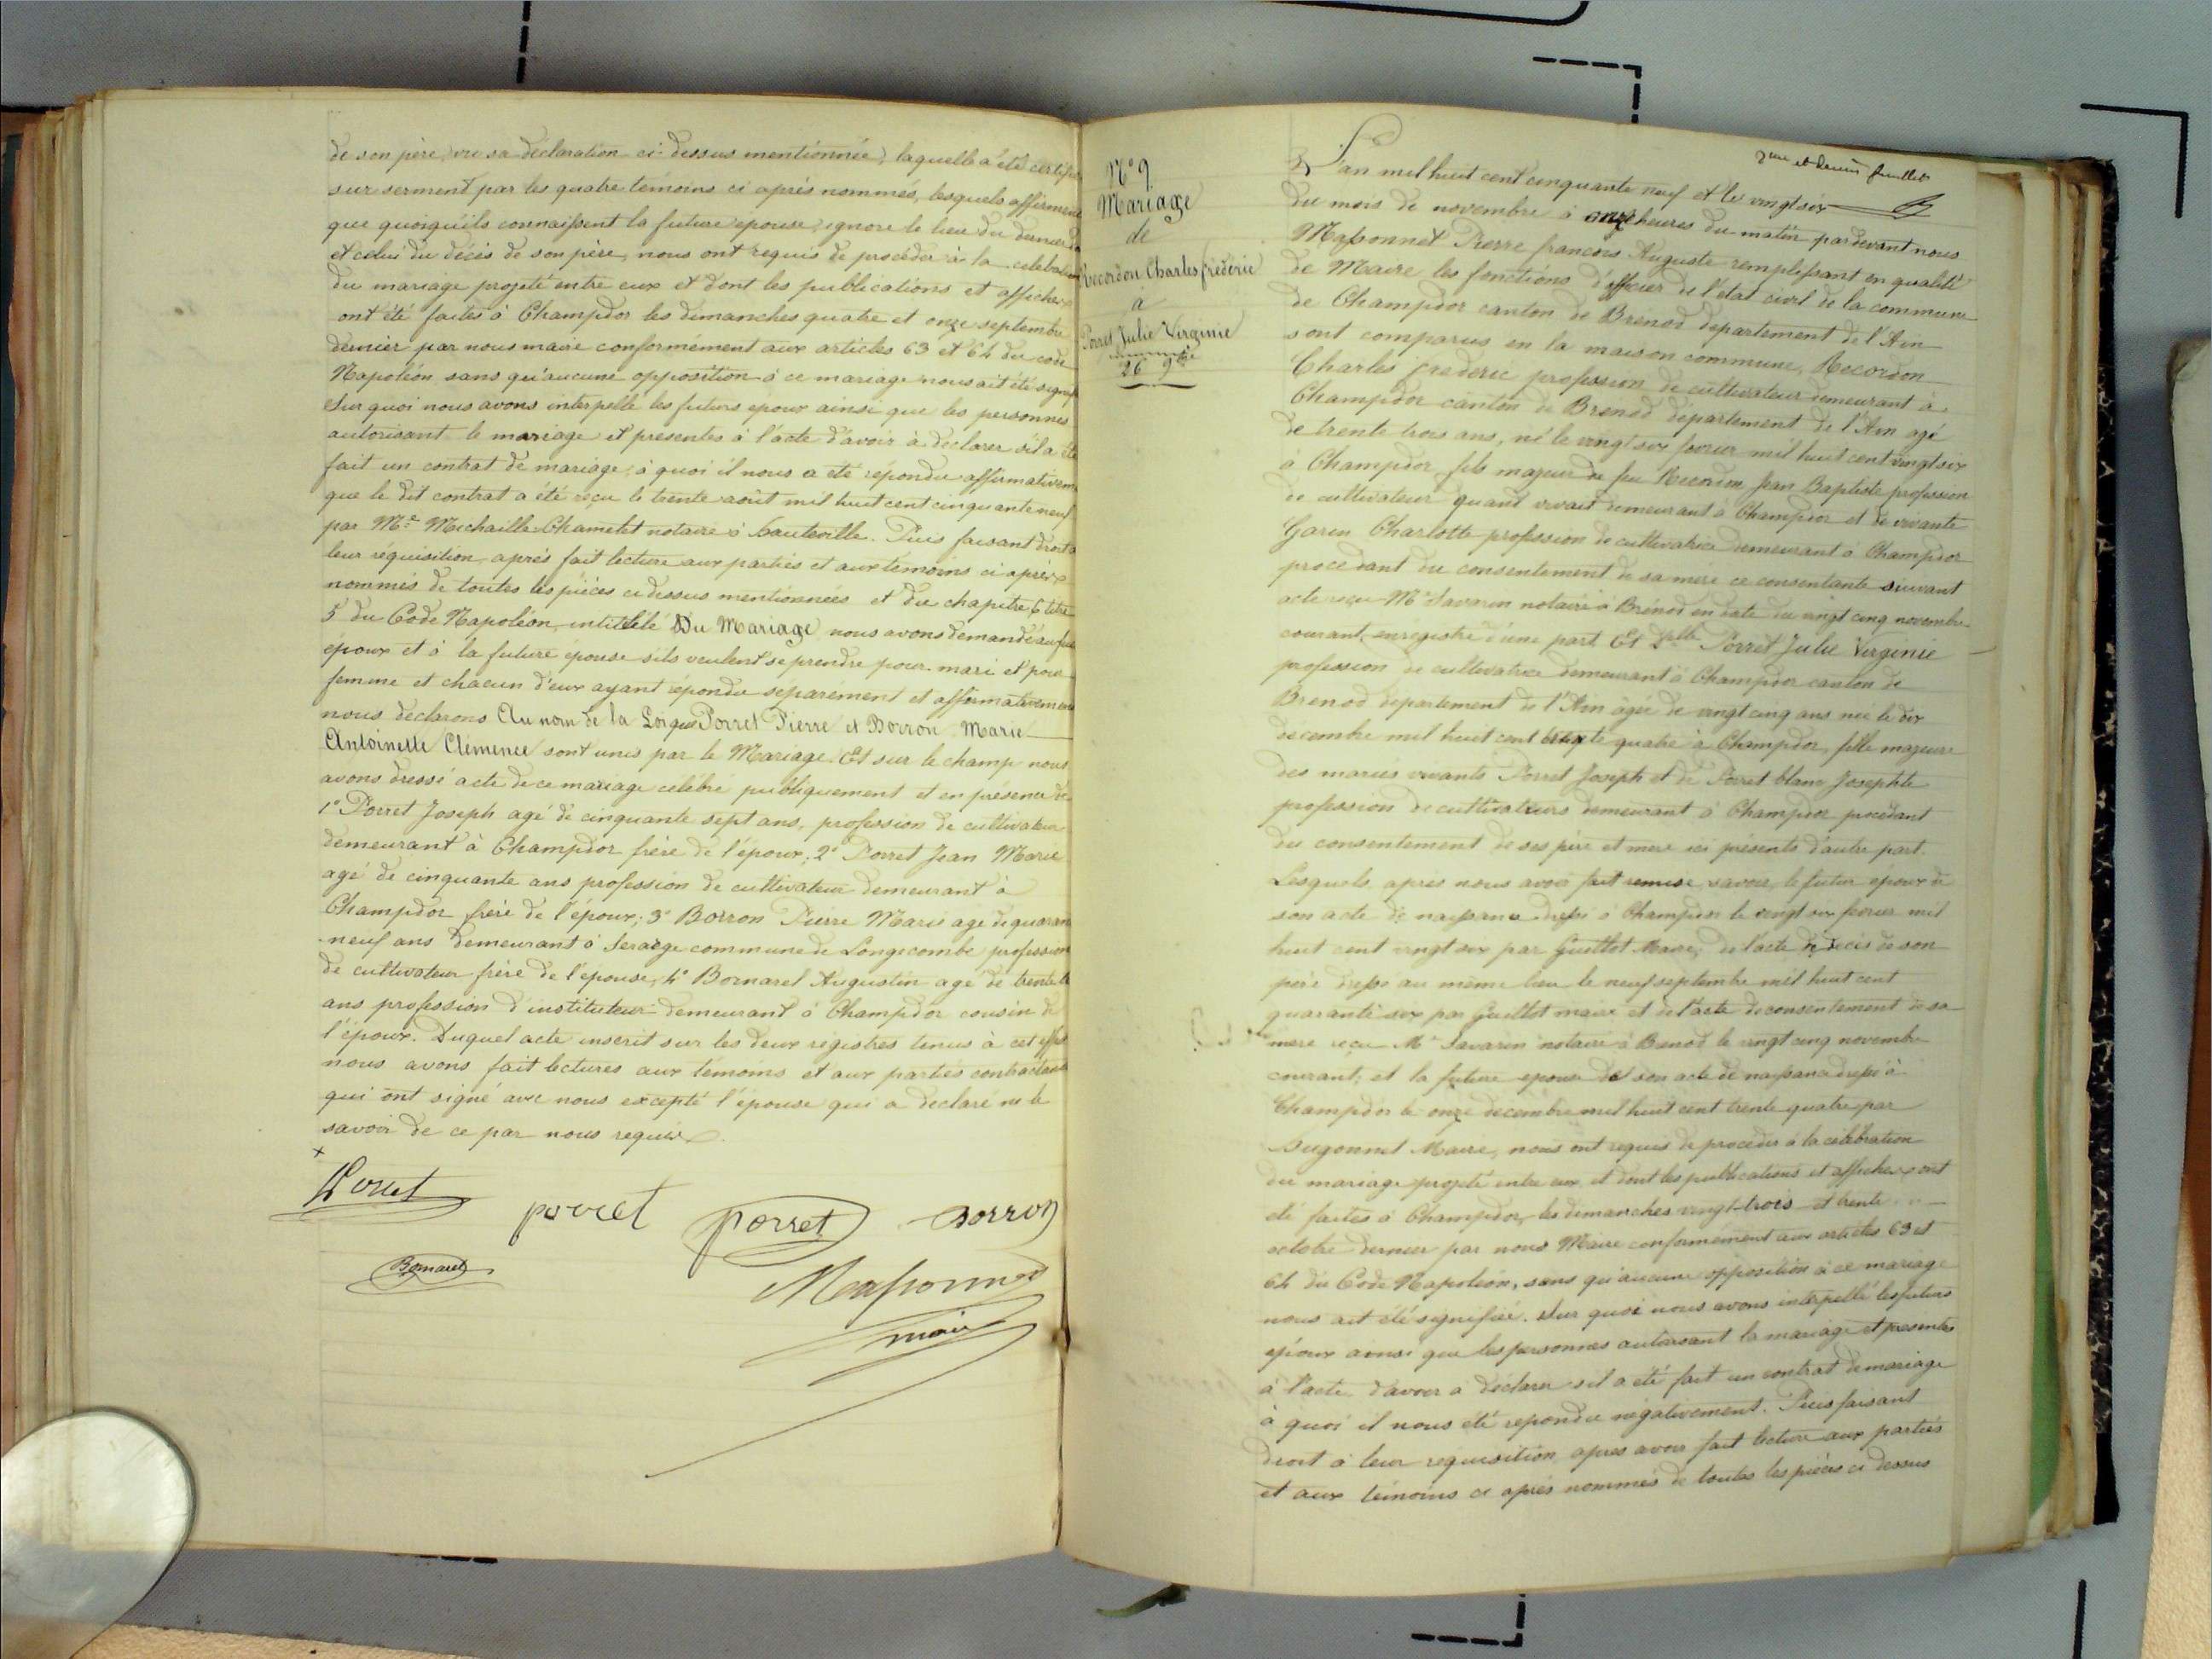 de son père, vu sa déclaration ci-dessus mentionnée, laquelle a été certifi
sur serment par les quatre témoins ci après nommés, lesquels affirment
que quoiqu'ils connaissent la future épouse, ignore le lieu du dernier
et celui du décès de son père, nous ont requis de procéder à la célébration
du mariage projeté entre eux et dont les publications et affiches
ont été faites à Champdor les dimanches quatre et onze septembre
dernier par nous maire conformément aux articles 63 et 64 du code
Napoléon sans qu'aucune opposition à ce mariage nous ait été signif
Sur quoi nous avons interpellé les futurs époux ainsi que les personnes
autorisant le mariage et présentes à l'acte d'avoir à déclarer s'il a été
fait un contrat de mariage, à quoi il nous a été répondu affirmativem
que le dit contrat a été reçu le trente août mil huit cent cinquante neuf
par Me Michaille-Chamelet notaire à hauteville. Puis faisant droit à
leur réquisition, après fait lecture aux parties et aux témoins ci après
nommés de toutes les pièces ci dessus mentionnées et du chapitre 6 titre
5 du Code Napoléon, intitulé Du Mariage nous avons demandé au futur
époux et à la future épouse s'ils veulent se prendre pour mari et pour
femme et chacun d'eux ayant répondu séparément et affirmativement
nous déclarons Au nom de la Loi que Porret Pierre et Borron Marie
Antoinette Clémence sont unis par le Mariage. Et sur le champ nous
avons dressé acte de ce mariage célébré publiquement et en présence de
1° Porret Joseph agé de cinquante sept ans, profession de cultivateur
demeurant à Champdor frère de l'époux; 2° Porret Jean Marie
agé de cinquante ans profession de cultivateur demeurant à
Champdor frère de l'époux; 3° Borron Pierre Marie agé de quaran
neuf ans demeurant à commune de Longecombe profession
de cultivateur frère de l'épouse, 4° Bornarel Augustin agé de trente
ans profession d'instituteur demeurant à Champdor cousin de
l'époux. Duquel acte inscrit sur les deux registres tenus à cet effet
nous avons fait lectures aux témoins et aux parties contractantes
qui ont signé avec nous excepté l'épouse qui a déclaré ne le
savoir de ce par nous requise.
Porret
porret porret Borron
Bornarel
Massonnet
maire
N° 9
Mariage
de
Recordon Charles fréderic
à
Porret Julie Virginie
26 9bre
et dernier feuillet
L'an mil huit cent cinquante neuf et le vingt six
du mois de novembre à onze heures du matin pardevant nous
Massonnet Pierre francois Auguste remplissant en qualité
de Maire les fonctions d'officier de l'état civil de la commune
de Champdor canton de Brénod département de l'Ain
sont comparus en la maison commune, Recordon
Charles frederic profession de cultivateur demeurant à
Champdor canton de Brénod département de l'Ain agé
de trente trois ans, né le vingt six février mil huit cent vingt six
à Champdor fils majeur de feu Recordon Jean Baptiste profession
de cultivateur quand vivait demeurant à Champdor et de vivante
Garin Charlotte profession de cultivatrice demeurant à Champdor
procédant du consentement de sa mère ce consentante suivant
acte reçu Me Savarin notaire à Brénod en date du vingt cinq novembre
courant, enregistré d'une part. Et Delle Porret Julie Virginie
profession de cultivatrice demeurant à Champdor canton de
Brenod département de l'Ain âgée de vingt cinq ans née le dix
décembre mil huit cent trente quatre à Champdor, fille majeure
des mariés vivants Porret Joseph et de Porret blanc Josephte
profession de cultivateurs demeurant à Champdor procédant
du consentement de ses père et mère ici présents d'autre part.
Lesquels, après nous avoir fait remise, savoir, le futur époux de
son acte de naissance dressé à Champdor le vingt six février mil
huit cent vingt six par Guillot Maire, de l'acte de décès de son
père dressé au même lieu le neuf septembre mil huit cent
quarante six par Guillot maire et de l'acte de consentement de sa
mère reçu Me Savarin notaire à Brenod le vingt cinq novembre
courant; et la future épouse de son acte de naissance dressé à
Champdor le onze décembre mil huit cent trente quatre par
Maire, nous ont requis de procéder à la célébration
du mariage projeté entre eux et dont les publications et affiches ont
été faites à Champdor, les dimanches vingt-trois et trente
octobre dernier par nous Maire conformément aux articles 63 et
64 du Code Napoléon, sans qu'aucune opposition à ce mariage
nous ait été signifiée. Sur quoi nous avons interpellé les futurs
époux ainsi que les personnes autorisant le mariage et présentes
à l'acte d'avoir à déclarer s'il a été fait un contrat de mariage
à quoi il nous été répondu négativement. Puis faisant
droit à leur réquisition, après avoir fait lecture aux parties
et aux témoins ci après nommés de toutes les pièces ci dessus